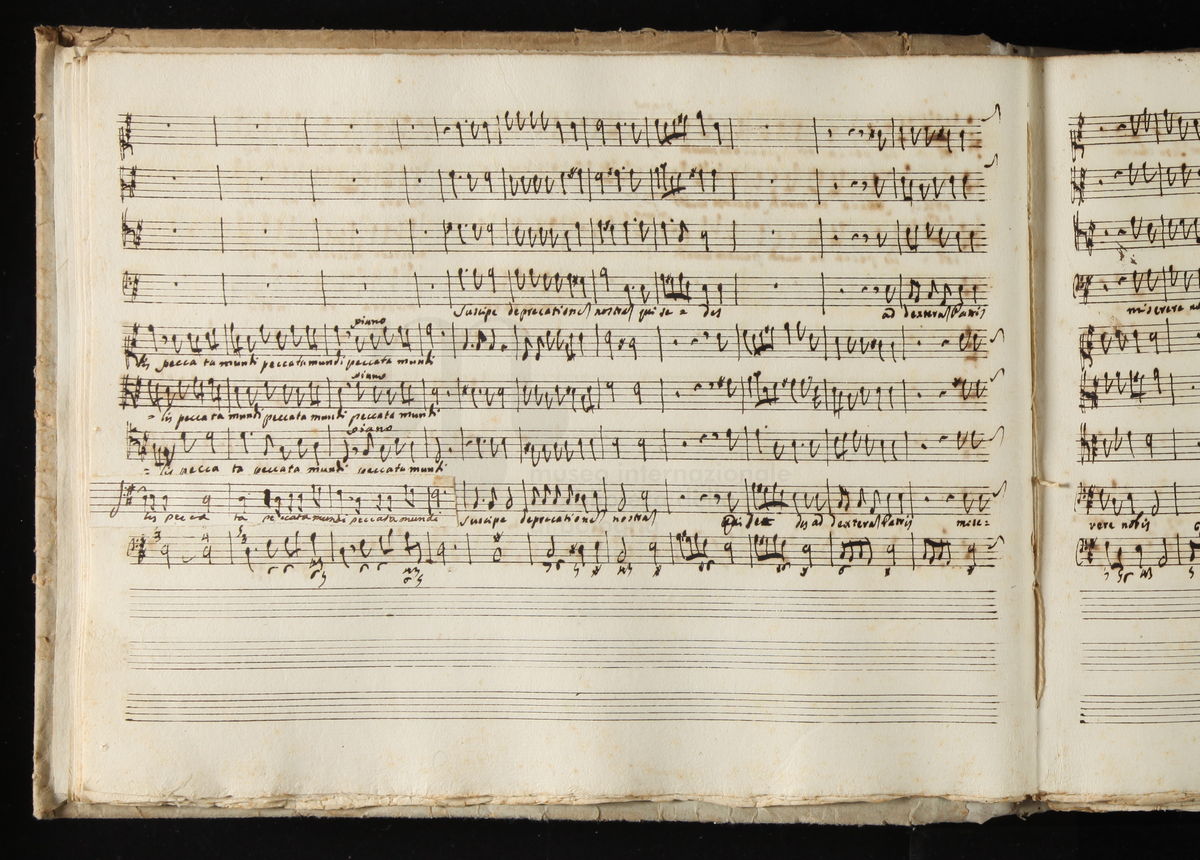 Suscipe deprecationem nostram qui se = des ad dexteram Patris
piano
tis pecca ta mundi peccata mundi peccata mundi
piano
= lis peccata mundi peccata mundi peccata mundi
piano
= lis pecca ta peccata mundi peccata mundi
lis pecca ta peccata mundi peccata mundi Suscipe deprecationem nostram des ad dexteram Patris mise=
museo internazionale
miserere no
vere nobis